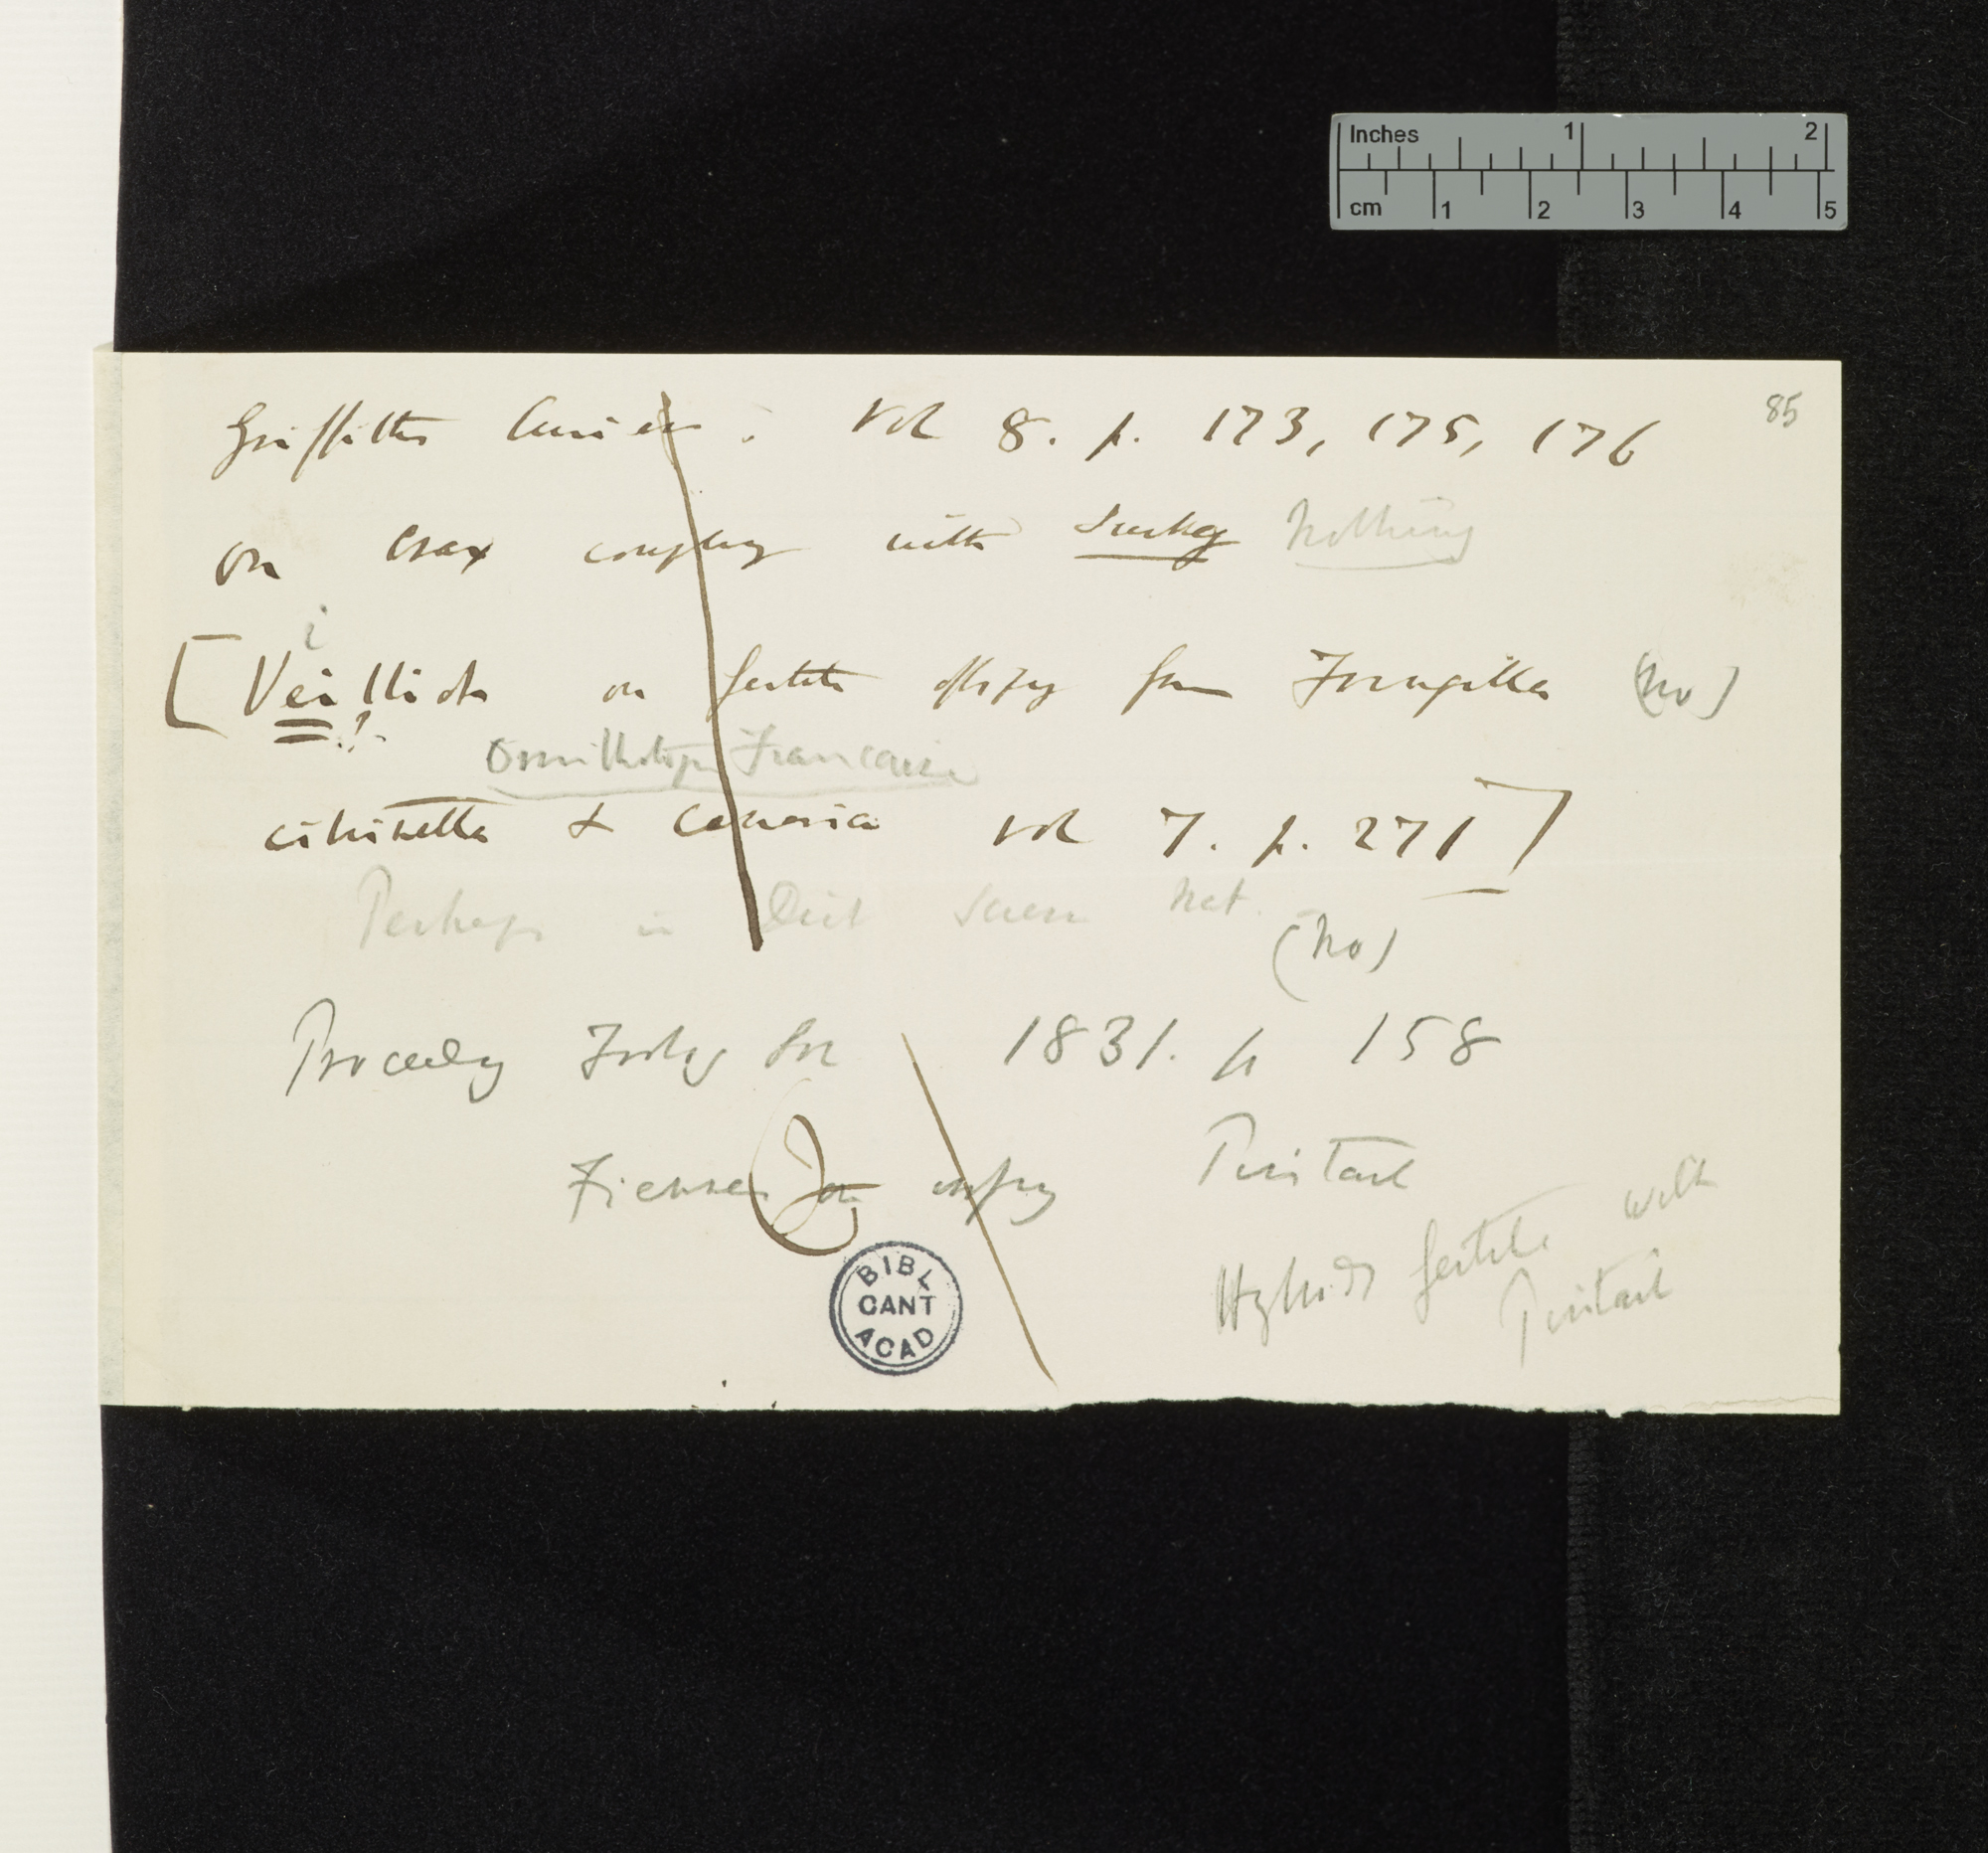 Inches 1 2
cm 1 2 3 4 5
85
Griffiths Cuvier. Vol 8. p. 173, 175, 176
on Crax coupling with Turkey Nothing
i
[Veillot on fertile offspring from Fringilla (No)
Ornithologie Francaise
citrinella & Canaria vol 7. p. 271]
Perhaps in Dict Scien Nat.
(No)
Proceedg Zoolog Soc 1831. p 158
on Pintail
Hybrids fertile with
Pintail
BIBL
CANT
ACAD